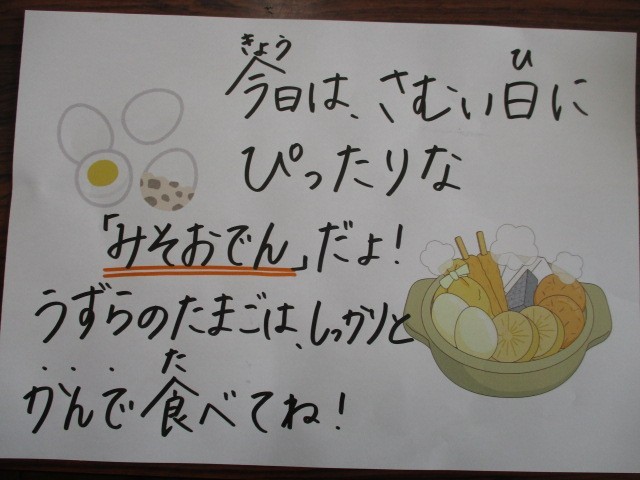 きょう ひ
今日は、さむい日に
ぴったりな
「みそおでん」だよ!
うずらのたまごは、しっかりと
た
かんで食べてね!